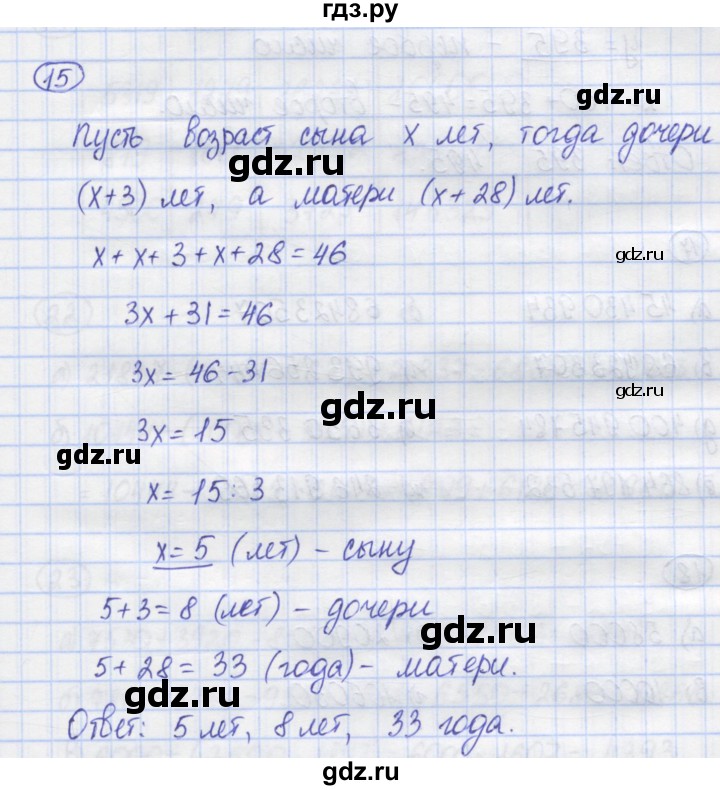 гдз.ру
15
Пусть возраст сына x лет, тогда дочери
(x+3) лет, а матери (x+28) лет.
x+x+3+x+28=46
3x+31=46
3x=46-31
3x=15
x=15:3
x=5 (лет) - сыну
5+3=8 (лет) - дочери
5+28=33 (года) - матери.
Ответ: 5 лет, 8 лет, 33 года.
gdz.ru
gdz.ru
gdz.ru
gdz.ru
gdz.ru
gdz.ru
gdz.ru
gdz.ru
gdz.ru
gdz.ru